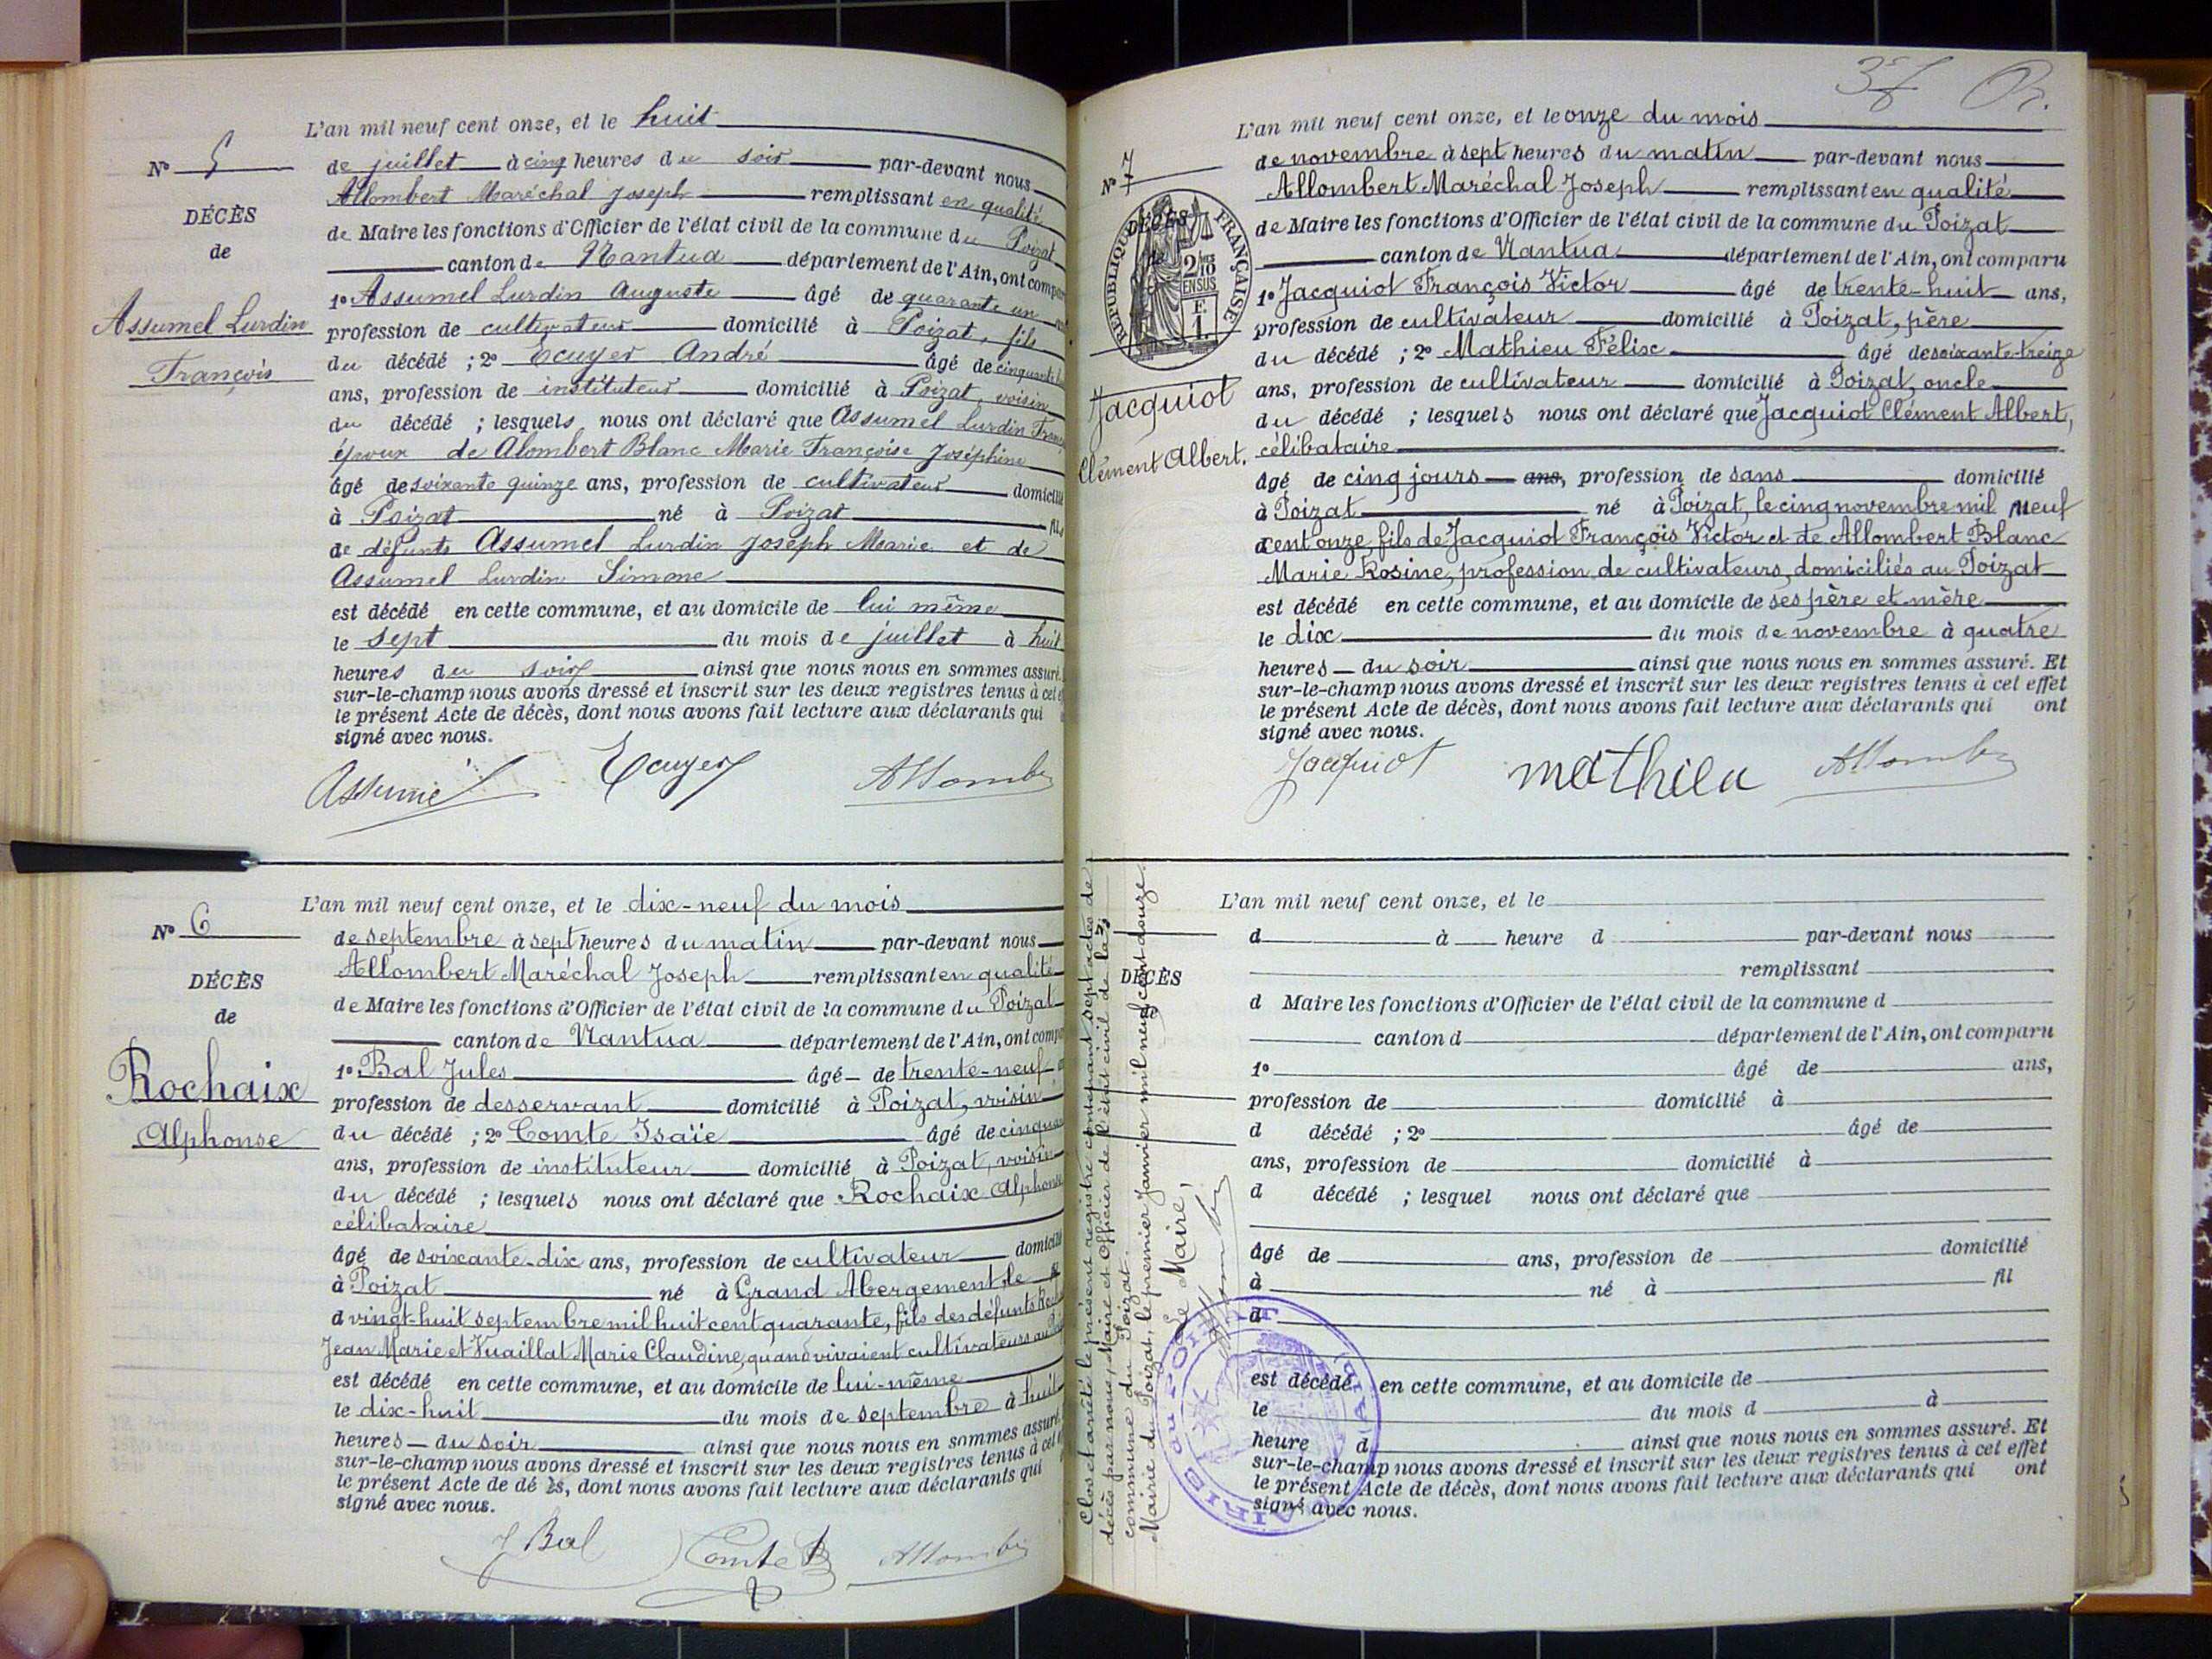 L'an mil neuf cent onze, et le huit
N° 5
de juillet à cinq heures du soir par-devant nous
Allombert Maréchal Joseph remplissant en qualité
DÉCÈS
de Maire les fonctions d'Officier de l'état civil de la commune du Poizat
de
canton de Nantua département de l'Ain, ont comparu
1° Assumel Lurdin Auguste âgé de quarante un
Assumel Lurdin
profession de cultivateur domicilié à Poizat, fils
François
du décédé ; 2° Ecuyer André âgé de
ans, profession de instituteur domicilié à Poizat, voisin
du décédé ; lesquels nous ont déclaré que Assumel Lurdin
époux de Alombert Blanc Marie Françoise Joséphine
âgé de soixante quinze ans, profession de cultivateur domicilié
à Poizat né à Poizat fils
de défunts Assumel Lurdin Joseph Marie et de
Assumel Lurdin Simone
est décédé en cette commune, et au domicile de lui même
le sept du mois de juillet à huit
heures du soir ainsi que nous nous en sommes assuré.
sur-le-champ nous avons dressé et inscrit sur les deux registres tenus à cet
le présent Acte de décès, dont nous avons fait lecture aux déclarants qui
signé avec nous.
Assumel Ecuyer Allombert
L'an mil neuf cent onze, et le dix-neuf du mois
N° 6
de septembre à sept heures du matin par-devant nous
Allombert Maréchal Joseph remplissant en qualité
DÉCÈS
de Maire les fonctions d'Officier de l'état civil de la commune du Poizat
de
canton de Nantua département de l'Ain, ont
1° Bal Jules âgé de trente-neuf
Rochaix
profession de desservant domicilié à Poizat, voisin
Alphonse
du décédé ; 2° Comte Isaïe âgé de
ans, profession de instituteur domicilié à Poizat, voisin
du décédé ; lesquels nous ont déclaré que Rochaix Alphonse
célibataire
âgé de soixante-dix ans, profession de cultivateur domicilié
à Poizat né à Grand Abergement, le
d vingt-huit septembre mil huit cent quarante, fils des défunts
Jean Marie et Vuaillat Marie Claudine, quand vivaient cultivateurs au
est décédé en cette commune, et au domicile de lui-même
le dix-huit du mois de septembre à huit
heures du soir ainsi que nous nous en sommes assuré.
sur-le-champ nous avons dressé et inscrit sur les deux registres tenus à cet
le présent Acte de dé ès, dont nous avons fait lecture aux déclarants qui
signé avec nous.
J Bal Comte Allombert
L'an mil neuf cent onze, et le onze du mois
N° 7
de novembre à sept heures du matin par-devant nous
Allombert Maréchal Joseph remplissant en qualité
DÉCÈS
RÉPUBLIQUE FRANÇAISE
2/10
EN SUS
E
1.
de Maire les fonctions d'Officier de l'état civil de la commune du Poizat
canton de Nantua département de l'Ain, ont comparu
1° Jacquiot François Victor âgé de trente-huit ans,
profession de cultivateur domicilié à Poizat, père
du décédé ; 2° Mathieu Félix âgé de soixante-treize
Jacquiot
ans, profession de cultivateur domicilié à Poizat, oncle
du décédé ; lesquels nous ont déclaré que Jacquiot Clément Albert,
Clément Albert.
célibataire
âgé de cinq jours ans, profession de sans domicilié
à Poizat né à Poizat, le cinq novembre mil neuf
cent onze, fils de Jacquiot François Victor et de Allombert Blanc
Marie Rosine, profession de cultivateurs, domiciliés au Poizat
est décédé en cette commune, et au domicile de ses père et mère
le dix du mois de novembre à quatre
heures du soir ainsi que nous nous en sommes assuré. Et
sur-le-champ nous avons dressé et inscrit sur les deux registres tenus à cet effet
le présent Acte de décès, dont nous avons fait lecture aux déclarants qui ont
signé avec nous.
Jacquiot mathieu Allombert
Clos et arrêté le présent registre contenant sept actes de
décès par nous, Maire et Officier de l'état civil de la
commune du Poizat.
Mairie du Poizat, le premier Janvier mil neuf cent douze.
Le Maire,
Allombert
MAIRIE du POIZAT (AIN)
L'an mil neuf cent onze, et le
d à heure d par-devant nous
remplissant
DÉCÈS
d Maire les fonctions d'Officier de l'état civil de la commune d
canton d département de l'Ain, ont comparu
1° âgé de ans,
profession de domicilié à
d décédé ; 2° âgé de
ans, profession de domicilié à
d décédé ; lesquel nous ont déclaré que
âgé de ans, profession de domicilié
à né à fil
d
est décédé en cette commune, et au domicile de
le du mois d à
heure d ainsi que nous nous en sommes assuré. Et
sur-le-champ nous avons dressé et inscrit sur les deux registres tenus à cet effet
le présent Acte de décès, dont nous avons fait lecture aux déclarants qui ont
signé avec nous.